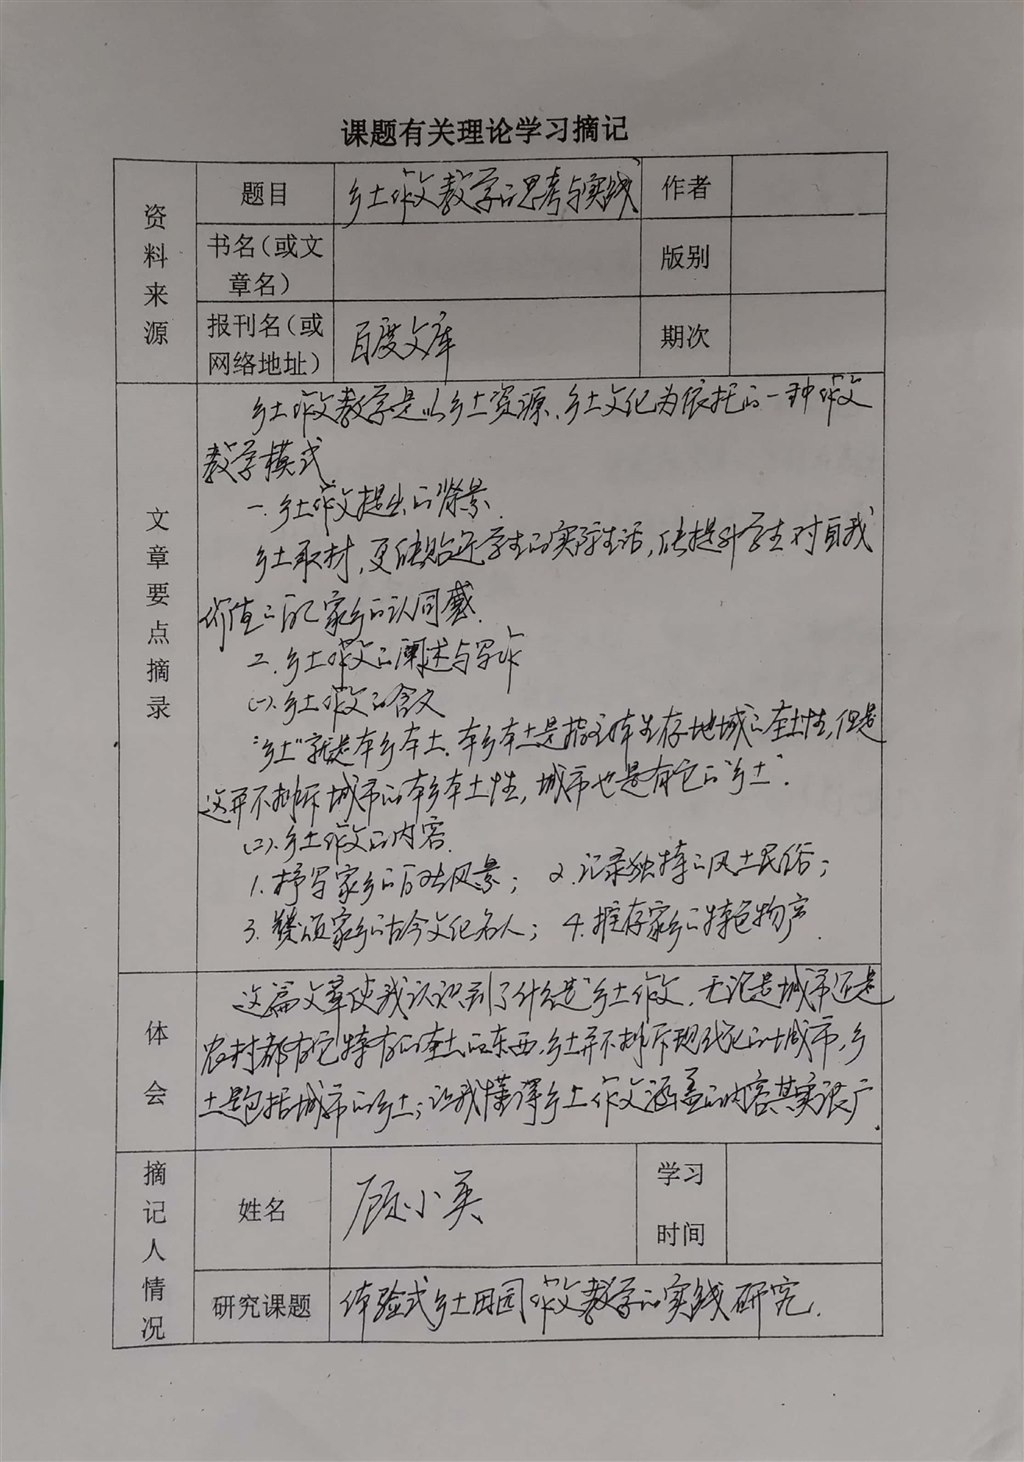 课题有关理论学习摘记
资料来源
题目 乡土作文教学的思考与实践 作者
书名(或文章名) 版别
报刊名(或网络地址) 百度文库 期次
文章要点摘录
乡土作文教学是以乡土资源、乡土文化为依托的一种作文
教学模式
一. 乡土作文提出的背景.
乡土取材,更能贴近学生的实际生活,能提升学生对自我
价值的和家乡的认同感.
二. 乡土作文的阐述与写作
(一). 乡土作文的含义
"乡土"就是本乡本土. 本乡本土是指主体生存地域的本土性,但是
这并不排斥城市的本乡本土性,城市也是有它的"乡土".
(二). 乡土作文的内容.
1. 抒写家乡的历史风景; 2. 记录独特的风土民俗;
3. 赞颂家乡的古今文化名人; 4. 推荐家乡的特色物产.
体会
这篇文章使我认识到了什么是乡土作文. 无论是城市还是
农村都有它特有的本土的东西. 乡土并不排斥现代化的城市,乡
土是包括城市的乡土;让我懂得乡土作文涵盖的内容其实很广.
摘记人情况
姓名 顾小英 学习时间
研究课题 体验式乡土田园作文教学的实践研究.